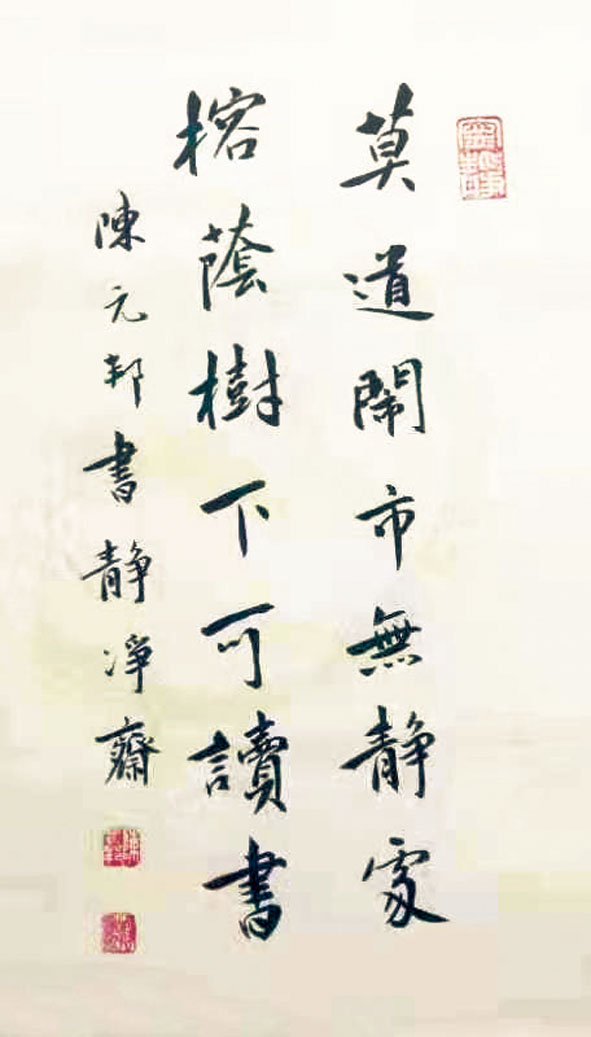 莫道鬧市無静處
榕蔭樹下可讀書
陳元邦書静净齋